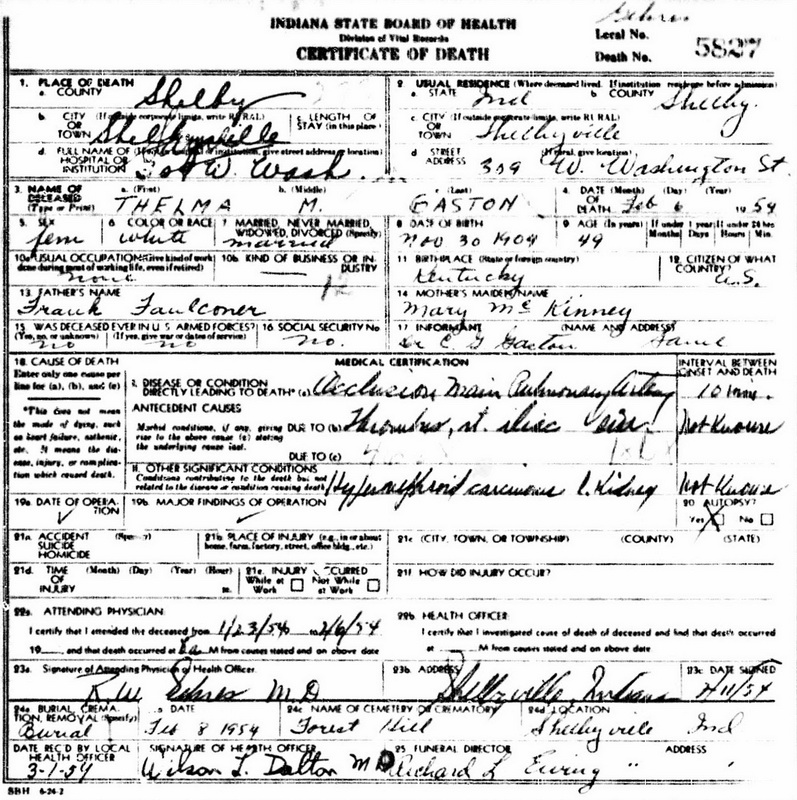 INDIANA STATE BOARD OF HEALTH
Division of Vital Records
CERTIFICATE OF DEATH
Local No.
Death No. 5827
1. PLACE OF DEATH
a. COUNTY Shelby
b. CITY (If outside corporate limits, write RURAL) OR TOWN Shelbyville
c. LENGTH OF STAY (in this place)
d. FULL NAME OF (If not in hospital or institution, give street address or location) HOSPITAL OR INSTITUTION W. Wash.
2. USUAL RESIDENCE (Where deceased lived. If institution: residence before admission)
a. STATE Ind b. COUNTY Shelby.
c. CITY (If outside corporate limits, write RURAL) OR TOWN Shelbyville
d. STREET (If rural, give location) ADDRESS 309 W. Washington St.
3. NAME OF DECEASED (Type or Print) a. (First) THELMA b. (Middle) M. c. (Last) GASTON
4. DATE OF DEATH (Month) (Day) (Year) Feb 6 1954
5. SEX fem
6. COLOR OR RACE white
7. MARRIED, NEVER MARRIED, WIDOWED, DIVORCED (Specify) married
8. DATE OF BIRTH Nov 30 1904
9. AGE (In years) 49 If under 1 year Months Days If under 24 hrs Hours Min.
10a. USUAL OCCUPATION (Give kind of work done during most of working life, even if retired) none
10b. KIND OF BUSINESS OR INDUSTRY 12
11. BIRTHPLACE (State or foreign country) Kentucky
12. CITIZEN OF WHAT COUNTRY? U.S.
13. FATHER'S NAME Frank Faulconer
14. MOTHER'S MAIDEN NAME Mary McKinney
15. WAS DECEASED EVER IN U. S. ARMED FORCES? (Yes, no, or unknown) no (If yes, give war or dates of service) no
16. SOCIAL SECURITY No. no.
17. INFORMANT (NAME AND ADDRESS) Dr C G Gaston Same
18. CAUSE OF DEATH
Enter only one cause per line for (a), (b), and (c)
*This does not mean the mode of dying, such as heart failure, asthenia, etc. It means the disease, injury, or complication which caused death.
MEDICAL CERTIFICATION
INTERVAL BETWEEN ONSET AND DEATH
I. DISEASE OR CONDITION DIRECTLY LEADING TO DEATH* (a) Occlusion Main Pulmonary Artery 10 min.
ANTECEDENT CAUSES
Morbid conditions, if any, giving rise to the above cause (a) stating the underlying cause last.
DUE TO (b) Thrombus, rt. iliac Not Known
DUE TO (c)
II. OTHER SIGNIFICANT CONDITIONS
Conditions contributing to the death but not related to the disease or condition causing death.
Hypernephroid carcinoma l. Kidney Not Known
19a. DATE OF OPERATION
19b. MAJOR FINDINGS OF OPERATION
20. AUTOPSY? Yes X No
21a. ACCIDENT SUICIDE HOMICIDE (Specify)
21b. PLACE OF INJURY (e.g., in or about home, farm, factory, street, office bldg., etc.)
21c. (CITY, TOWN, OR TOWNSHIP) (COUNTY) (STATE)
21d. TIME OF INJURY (Month) (Day) (Year) (Hour) m.
21e. INJURY OCCURRED While at Work Not While at Work
21f. HOW DID INJURY OCCUR?
22a. ATTENDING PHYSICIAN:
I certify that I attended the deceased from 1/23/54 to 2/6/54
19 , and that death occurred at M from causes stated and on above date
22b. HEALTH OFFICER:
I certify that I investigated cause of death of deceased and find that death occurred at M from causes stated and on above date
23a. Signature of Attending Physician or Health Officer. M.D
23b. ADDRESS Shelbyville, Indiana
23c. DATE SIGNED 2/11/54
24a. BURIAL, CREMATION, REMOVAL (Specify) Burial
b. DATE Feb 8 1954
24c. NAME OF CEMETERY OR CREMATORY Forest Hill
24d. LOCATION Shelbyville Ind
DATE REC'D BY LOCAL HEALTH OFFICER 3-1-54
SIGNATURE OF HEALTH OFFICER Wilson L. Dalton MD
25. FUNERAL DIRECTOR ADDRESS Richard L Ewing " "
SBH 6-24-2